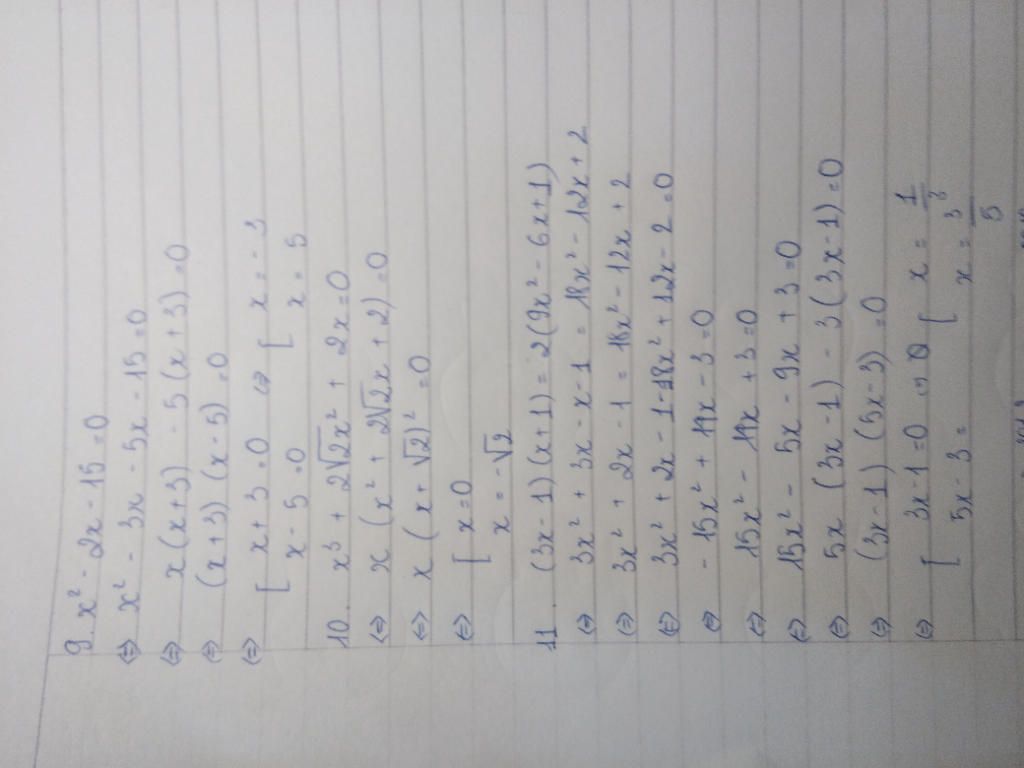 9. x² - 2x - 15 = 0
⇔ x² - 3x - 5x - 15 = 0
⇔ x(x+3) - 5(x+3) = 0
⇔ (x+3)(x-5) = 0
⇔ [ x+3 = 0 ⇔ [ x = -3
x-5 = 0 x = 5
10. x³ + 2√2x² + 2x = 0
⇔ x (x² + 2√2x + 2) = 0
⇔ x (x + √2)² = 0
⇔ [ x = 0
x = -√2
11. (3x-1)(x+1) = 2(9x² - 6x + 1)
⇔ 3x² + 3x - x - 1 = 18x² - 12x + 2
⇔ 3x² + 2x - 1 = 18x² - 12x + 2
⇔ 3x² + 2x - 1 - 18x² + 12x - 2 = 0
⇔ - 15x² + 14x - 3 = 0
⇔ 15x² - 14x + 3 = 0
⇔ 15x² - 5x - 9x + 3 = 0
⇔ 5x (3x-1) - 3(3x-1) = 0
⇔ (3x-1) (5x-3) = 0
⇔ [ 3x-1 = 0 ⇔ [ x = 1/3
5x-3 = x = 3/5